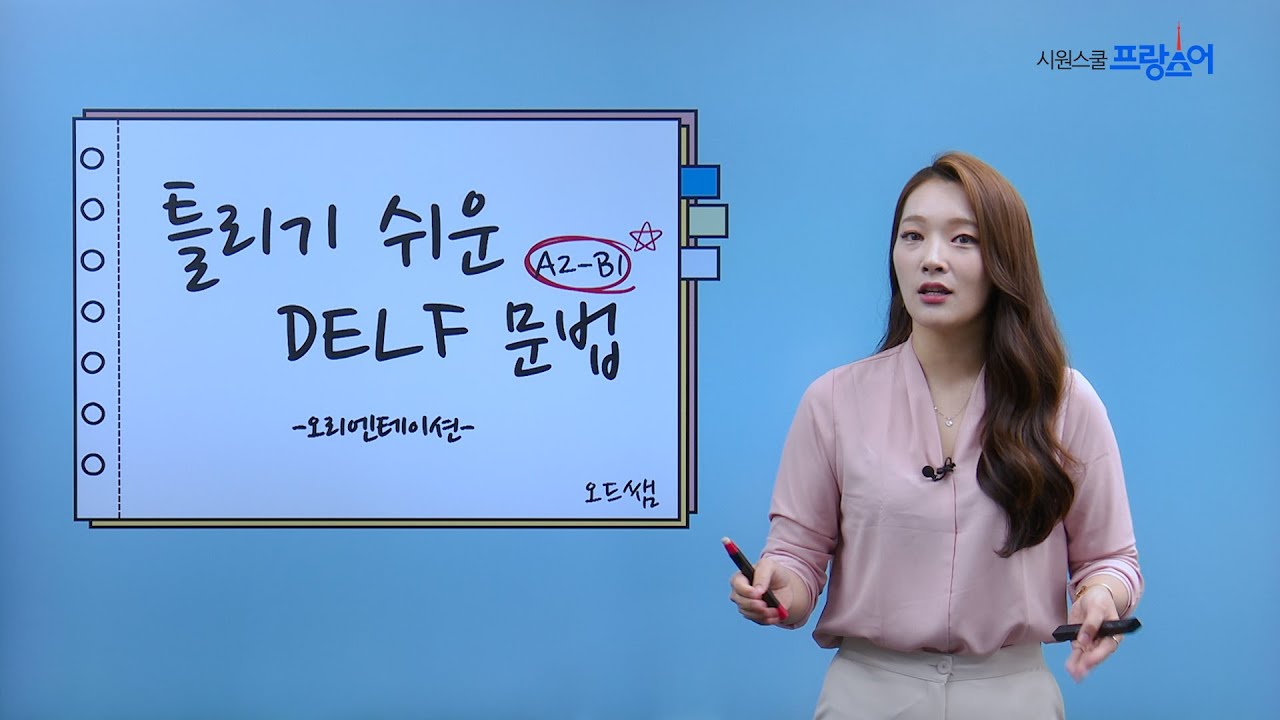 시원스쿨 프랑스어
틀리기 쉬운
A2-B1
DELF 문법
-오리엔테이션-
오드쌤